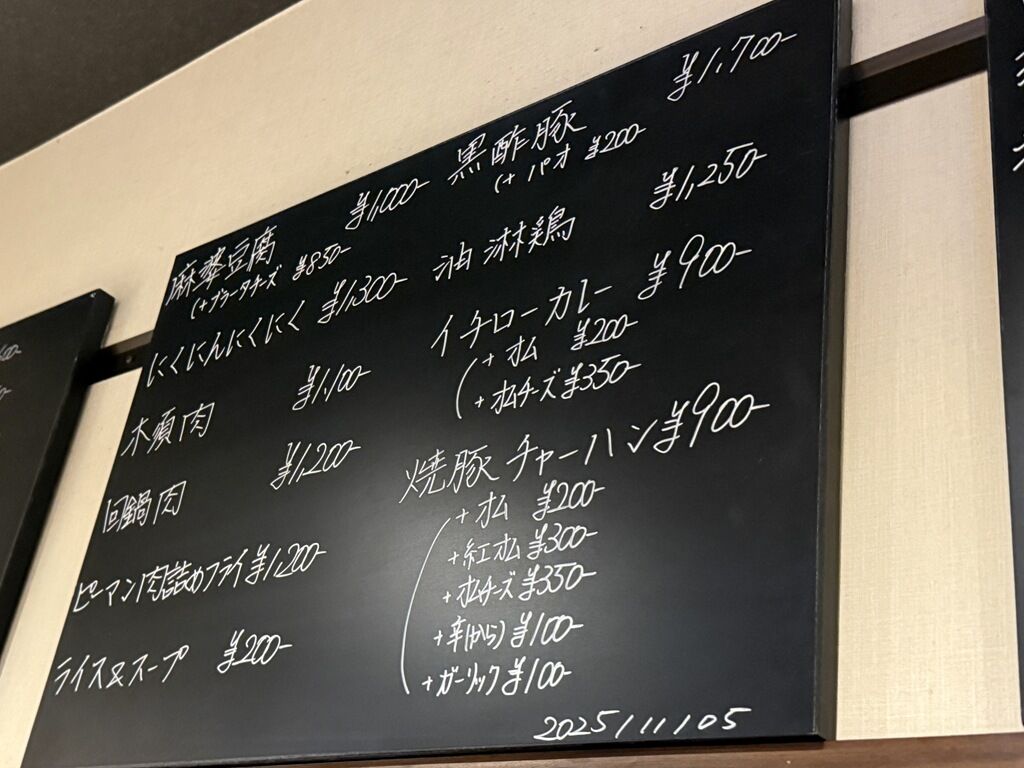 麻婆豆腐 ¥1,000-
(+ブラータチーズ ¥850-
にくにんにくにく ¥1,300-
木須肉 ¥1,100-
回鍋肉 ¥1,200-
ピーマン肉詰めフライ ¥1,200-
ライス&スープ ¥200-
黒酢豚 ¥1,700-
(+ パオ ¥200-
油淋鶏 ¥1,250-
イチローカレー ¥900-
(+ オム ¥200-
+ オムチーズ ¥350-
焼豚チャーハン ¥900-
(+ オム ¥200-
+紅オム ¥300-
+オムチーズ ¥350-
+辛(から) ¥100-
+ガーリック ¥100-
2025/11/05